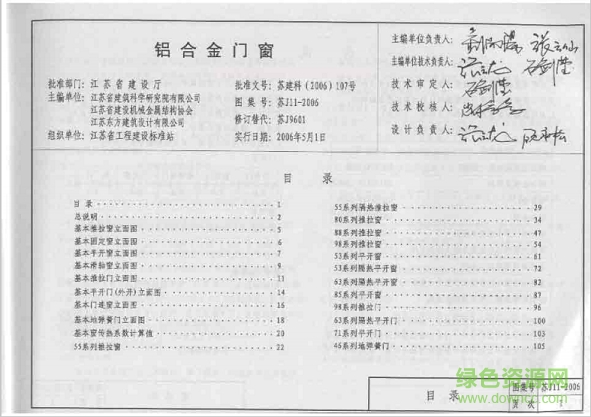 铝合金门窗
批准部门：江苏省建设厅
批准文号：苏建科（2006）107号
主编单位：江苏省建筑科学研究院有限公司
图集号：苏J11-2006
江苏省建设机械金属结构协会
修订替代：苏J9601
江苏东方建筑设计有限公司
组织单位：江苏省工程建设标准站
实行日期：2006年5月1
主编单位负责人：
主编单位技术负责人：
技术审定人：
技术校核人：
设计负责人：
目录
目录 1
总说明 2
基本推拉窗立面图 5
基本固定窗立面图 6
基本平开窗立面图 7
基本滑轴窗立面图 9
基本推拉门立面图 13
基本平开门(外开)立面图 14
基本门连窗立面图 16
基本地弹簧门立面图 18
基本窗传热系数计算值 20
55系列推拉窗 22
55系列隔热推拉窗 29
80系列推拉窗 34
88系列推拉窗 47
98系列推拉窗 54
53系列平开窗 61
53系列隔热平开窗 72
63系列隔热平开窗 82
85系列平开窗 87
98系列推拉门 96
63系列隔热平开门 100
71系列平开门 103
46系列地弹簧门 105
目录
图集号 苏J11-2006
页次 1
绿色资源网
www.downcc.com